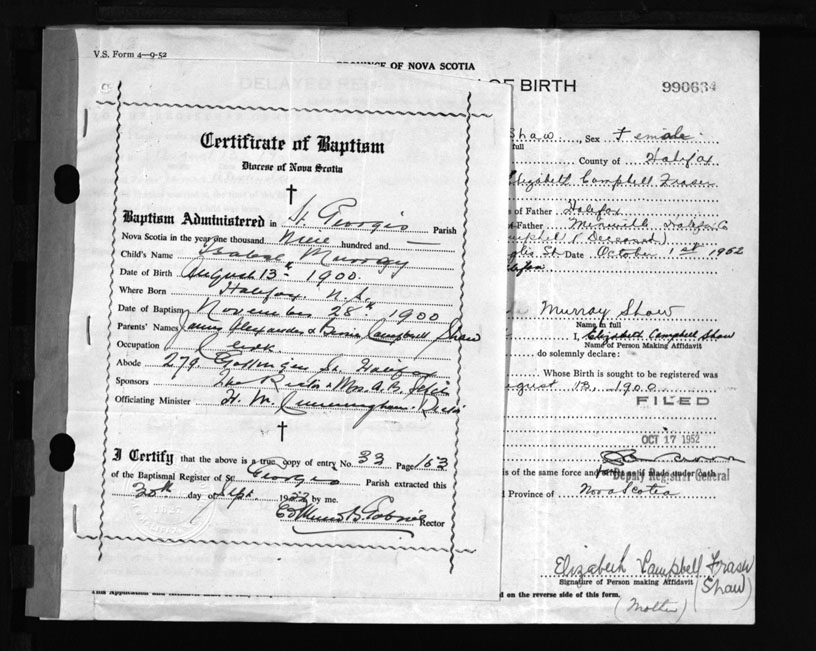 V.S. Form 4—9-52
PROVINCE OF NOVA SCOTIA
OF BIRTH
990634
Certificate of Baptism
Diocese of Nova Scotia
Baptism Administered in St. Georges Parish
Nova Scotia in the year one thousand Nine hundred and —
Child's Name Isabel Murray
Date of Birth August 13th 1900.
Where Born Halifax. N.S.
Date of Baptism November 28th 1900
Parents' Names James Alexander & Bessie Campbell Shaw
Occupation Clerk
Abode 279 Gottingen St. Halifax
Sponsors The Rector & Mrs. A. B.
Officiating Minister H. M. Cunningham. Rector
I Certify that the above is a true copy of entry No. 33 Page 163
of the Baptismal Register of St Georges Parish extracted this
30th day of Sept. 1952 by me.
Rector
Shaw, Sex Female
full
County of Halifax
Elizabeth Campbell Fraser
s of Father Halifax
Father
(Deceased)
St. Date October 1st 1952
Halifax
Murray Shaw
Name in full
I, Elizabeth Campbell Shaw
Name of Person Making Affidavit
do solemnly declare:
Whose Birth is sought to be registered was
August 13, 1900
FILED
OCT 17 1952
is of the same force and effect as if made under oath
Deputy Registrar General
Province of Nova Scotia
Elizabeth Campbell Fraser
(Shaw)
Signature of Person making Affidavit
d on the reverse side of this form.
(Mother)
This Application and